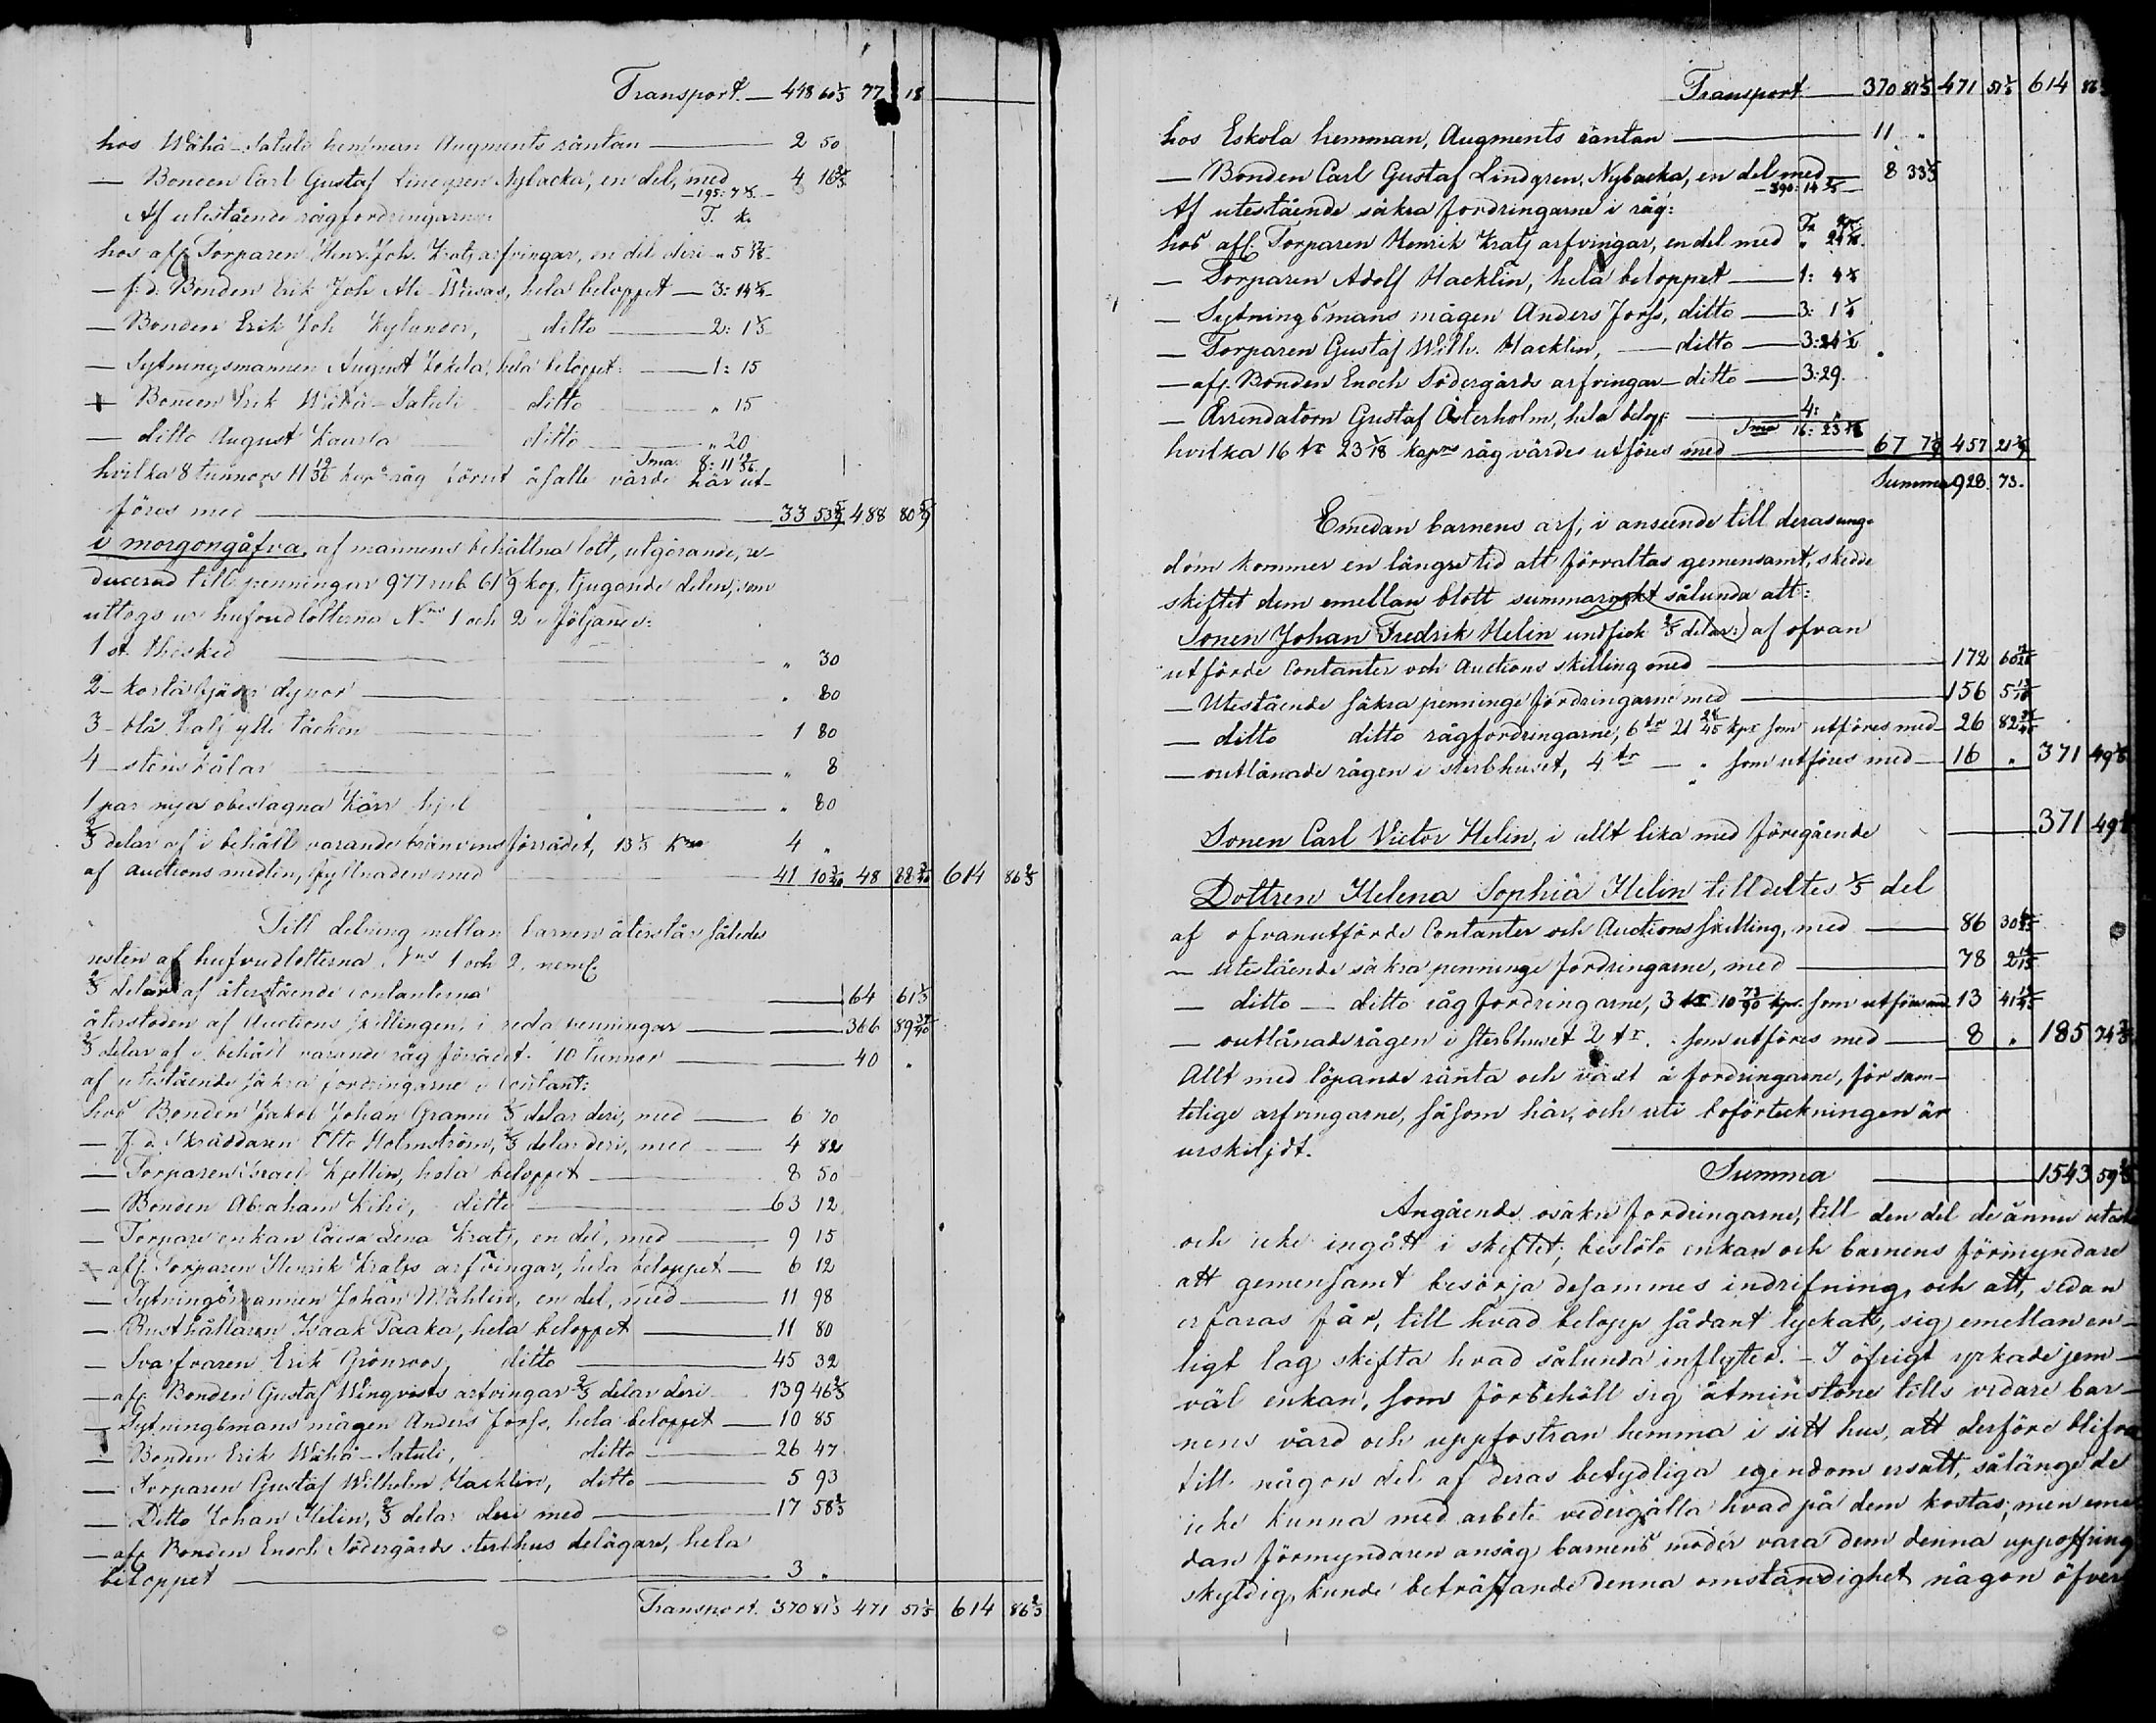 Transport. — 448 60 1/3 77 18
hos Wähä-Satuli hemman Augments räntan — 2 50
— Bonden Carl Gustaf Lindgren Nybacka, en del, med 4 16 2/3
— 195: 7 1/3 —
Af utestående rågfordringarne T. k.
hos afl. Torparen Henr. Joh. Kratz arfvingar, en del deri „ 5
— f. d. Bonden Erik Joh Ali-Wiisas, hela beloppet — 3: 14
— Bonden Erik Joh Kylander, ditto — 2: 1
— Sytningsmannen August Jokela, hela beloppet — 1: 15
— Bonden Erik Wähä-Satuli ditto „ 15
— ditto August Kaarla ditto „ 20
Sma: 8: 11 19/36
hvilka 8 tunnors 11 19/36 kapr råg förut åsatte värde här ut-
föres med — 33 53 5/9 488 80 5/9
i morgongåfva, af mannens behållna lott, utgörande, re-
ducerad till penningar 977 rub 61 1/9 kop. tjugonde delen, som
uttogs ur hufvudlotterna Nris 1 och 2 i följande:
1 st. thésked — „ 30
2 – kosta hjäsor dynor — „ 80
3 – blå half ylle täcken — 1 80
4 – stenskålar — „ 8
1 par nya obeslagna Kärr hjul „ 80
2/3 delar af i behåll varande bränvinsförrådet, 13 1/3 Knr 4 „
af Auctions medlen, fyllnaden med 41 10 48 88 614 86 2/3
Till delning mellan barnen återstår således
resten af hufvudlotterna Nris 1 och 2, neml.
2/3 delar af återstående contanterna — 64 61 1/3
återstoden af Auctions skillingen i reda penningar — 366 89 37/40
2/3 delar af i behåll varande råg förrådet 10 tunnor — 40 „
af utestående säkra fordringarne i contant:
hos Bonden Jakob Johan Granni 2/3 delar deri, med — 6 70
— f. d. Skräddaren Otto Holmström, 2/3 delar deri, med — 4 82
— Torparen Israel Kjellin, hela beloppet — 8 50
— Bonden Abraham Kihi, ditto — 63 12
— Torpare enkan Caisa Lena Kratz, en del, med — 9 15
— afl. Torparen Henrik Kratz arfvingar, hela beloppet — 6 12
— Sytningsmannen Johan Wåhlen, en del, med — 11 98
— Rusthållaren Isaak Paaka, hela beloppet — 11 80
— Svarfvaren Erik Grönroos, ditto — 45 32
— afl. Bonden Gustaf Winqvists arfvingar 2/3 delar deri 139 46 2/3
— Sytningsmans mågen Anders Jorfs, hela beloppet — 10 85
— Bonden Erik Wähä-Satuli, ditto — 26 47
— Torparen Gustaf Wilhelm Hacklin, ditto — 5 93
— Ditto Johan Helin, 2/3 delar deri med — 17 58 2/3
— afl. Bonden Enoch Södergårds sterbhus delägare, hela
beloppet — 3 „
Transport. 370 81 1/3 471 51 1/3 614 86 2/3
Transport — 370 81 1/3 471 51 1/3 614 86
hos Eskola hemman, Augments räntan — 11 „
— Bonden Carl Gustaf Lindgren, Nybacka, en del med — 8 33 1/3
— 390: 14 2/3 —
Af utestående säkra fordringarne i råg:
hos afl. Torparen Henrik Kratz arfvingar, en del med „ 24
— Torparen Adolf Hacklin, hela beloppet — 1: 4
— Sytningsmans mågen Anders Jorfs, ditto — 3: 1
— Torparen Gustaf Wilh. Hacklin, — ditto — 3: 24
— afl. Bonden Enoch Södergårds arfvingar — ditto — 3: 29.
— Arrendatorn Gustaf Österholm, hela belopp. — 4: „
Sma 16: 23 1/18
hvilka 16 tr 23 1/18 kaprs råg värdes utföres med — 67 7 457 21
Summa 928. 73.
Emedan barnens arf, i anseende till deras ung-
dom kommer en längre tid att förvaltas gemensamt, skedde
skiftet dem emellan blott summariskt sålunda att:
Sonen Johan Fredrik Helin undfick 2/5 delar:) af ofvan
utförde Contanter och Auctions skilling med — 172 60
— Utestående säkra penninge fordringarne med — 156 5
— ditto ditto rågfordringarne, 6 tr 21 28/45 kpr som utföres med 26 82
— outlånade rågen i sterbhuset, 4 tr — „ som utföres med — 16 „ 371 49
Sonen Carl Victor Helin, i allt lika med föregående — 371 49
Dottren Helena Sophia Helin tilldeltes 1/5 del
af ofvanutförde Contanter och Auctions skilling, med — 86 30
— utestående säkra penninge fordringarne, med — 78 2
— ditto — ditto råg fordringarne, 3 tr 10 73/90 kpr. som utföres med 13 41
— outlånade rågen i sterbhuset 2 tr. „ som utföres med — 8 „ 185 74
Allt med löpande ränta och växt å fordringarne, för sam-
telige arfvingarne, såsom här, och uti boförteckningen är
urskiljdt.
Summa — 1543 59
Angående osäkra fordringarne, till den del de ännu utestå
och icke ingått i skiftet, beslöto enkan och barnens förmyndare
att gemensamt besörja desammes indrifning, och att, sedan
erfaras får, till hvad belopp sådant lyckats, sig emellan en-
ligt lag skifta hvad sålunda inflyter. — I öfrigt yrkade jem-
väl enkan, som förbehöll sig åtminstone tills vidare bar-
nens vård och uppfostran hemma i sitt hus, att derföre blifva
till någon del af deras betydliga egendom ersatt, sålänge de
icke kunna med arbete vedergälla hvad på dem kostas; men eme-
dan förmyndaren ansåg barnens moder vara dem denna uppoffring
skyldig, kunde beträffande denna omständighet någon öfver